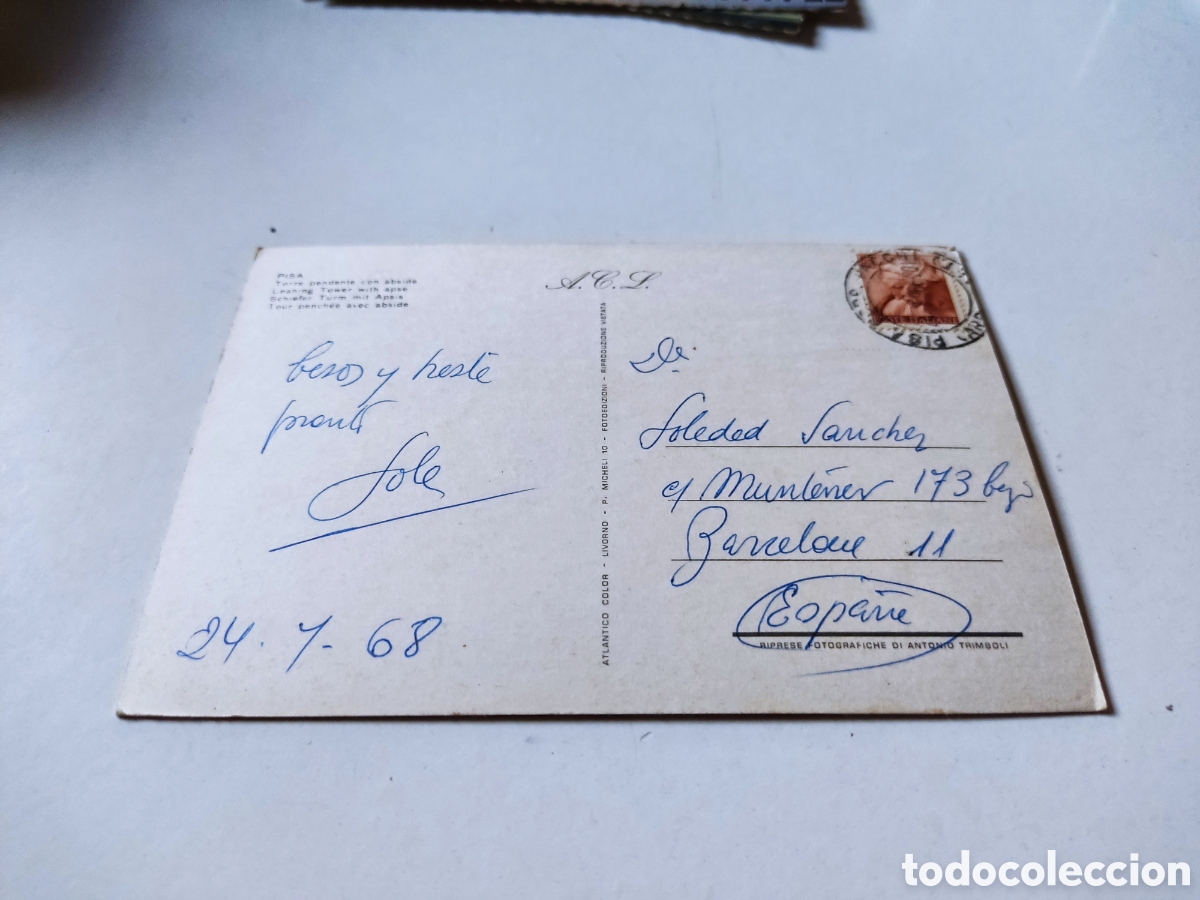 PISA
Torre pendente con abside
Leaning Tower with apse
Schiefer Turm mit Apsis
Tour penchée avec abside
A.C.L.
besos y hasta
pronto
Sole
24-7-68
ATLANTICO COLOR - LIVORNO - P. MICHELI 10 - FOTOEDIZIONI - RIPRODUZIONE VIETATA
PISA
Soledad Sanchez
c/ Muntaner 173 bajo
Barcelona 11
España
RIPRESE FOTOGRAFICHE DI ANTONIO TRIMBOLI
todocoleccion